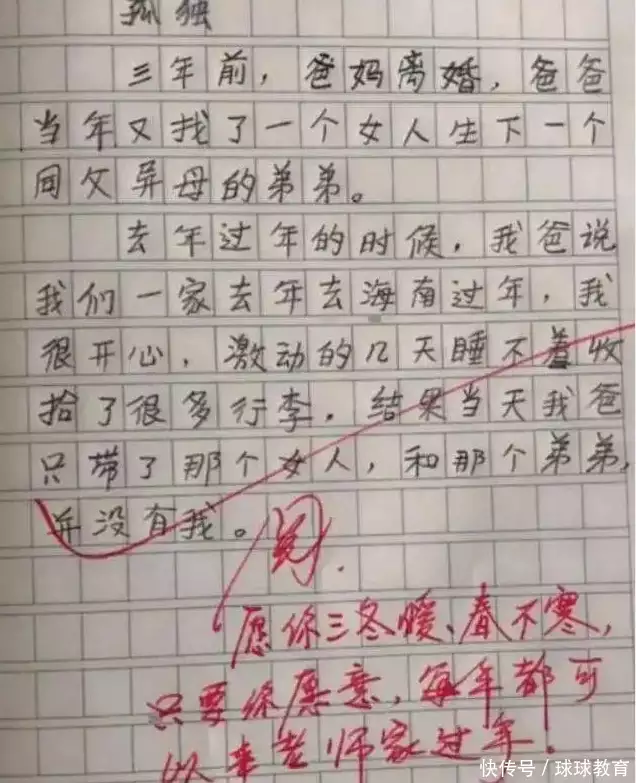 孤独
三年前，爸妈离婚，爸爸
当年又找了一个女人生下一个
同父异母的弟弟。
去年过年的时候，我爸说
我们一家去年去海南过年，我
很开心，激动的几天睡不着收
拾了很多行李，结果当天我爸
只带了那个女人，和那个弟弟，
并没有我。
阅.
愿你三冬暖、春不寒，
只要你愿意，每年都可
以来老师家过年.
快传号／球球教育